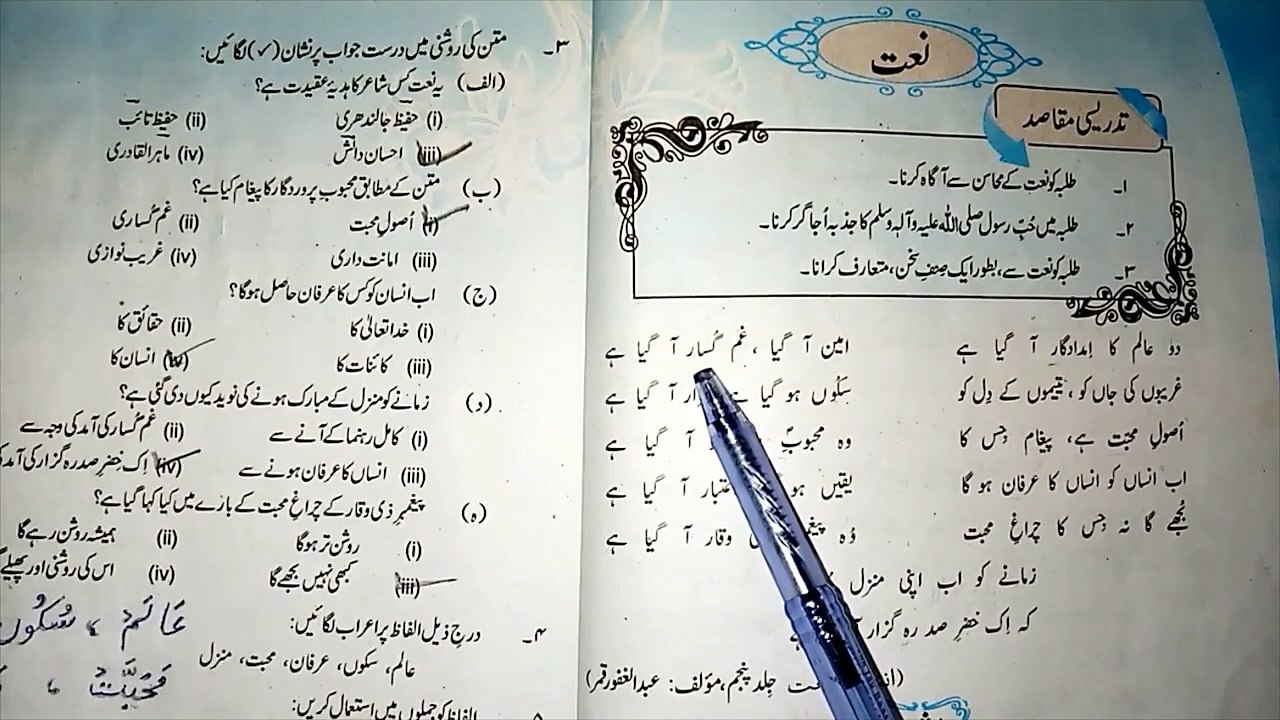 نعت
تدریسی مقاصد
۱۔ طلبہ کو نعت کے محاسن سے آگاہ کرنا۔
۲۔ طلبہ میں حُبِّ رسول صلی اللہ علیہ وآلہٖ وسلم کا جذبہ اُجاگر کرنا۔
۳۔ طلبہ کو نعت سے، بطور ایک صنفِ سخن، متعارف کرانا۔
دو عالم کا اِمدادگار آ گیا ہے امین آ گیا، غم گُسار آ گیا ہے
غریبوں کی جاں کو، یتیموں کے دِل کو سکُوں ہو گیا آ گیا ہے
اُصولِ محبّت ہے، پیغام جس کا وہ محبوبؐ آ گیا ہے
اب انساں کو انساں کا عرفان ہو گا یقیں ہو آ گیا ہے
بُجھے گا نہ جس کا چراغِ محبت وُہ وقار آ گیا ہے
زمانے کو اب اپنی منزل
کہ اِک خضرِ صد رہ گزار
جِلد پنجم، مؤلف: عبدالغفور قمر)
۳۔ متن کی روشنی میں درست جواب پر نشان (✓) لگائیں:
(الف) یہ نعت کس شاعر کا ہدیۂ عقیدت ہے؟
(i) حفیظ جالندھری (ii) حفیظ تائب
(iii) احسان دانش (iv) ماہر القادری
(ب) متن کے مطابق محبوب پروردگار کا پیغام کیا ہے؟
(i) اُصولِ محبت (ii) غم گُساری
(iii) امانت داری (iv) غریب نوازی
(ج) اب انسان کو کس کا عرفان حاصل ہو گا؟
(i) خدا تعالیٰ کا (ii) حقائق کا
(iii) کائنات کا (iv) انسان کا
(د) زمانے کو منزل کے مبارک ہونے کی نوید کیوں دی گئی ہے؟
(i) کامل رہنما کے آنے سے (ii) غم گُسار کی آمد کی وجہ سے
(iii) انساں کا عرفان ہونے سے (iv) اِک خضرِ صد رہ گزار کی آمد
(ہ) پیغمبرِ ذی وقار کے چراغِ محبت کے بارے میں کیا کہا گیا ہے؟
(i) روشن تر ہو گا (ii) ہمیشہ روشن رہے گا
(iii) کبھی نہیں بجھے گا (iv) اس کی روشنی اور پھیلے
۴۔ درج ذیل الفاظ پر اعراب لگائیں:
عالم، سکوں، عرفان، محبت، منزل
عَالَمْ ، سُکُوں
مَحَبَّتْ ،
الفاظ کو جملوں میں استعمال کریں: